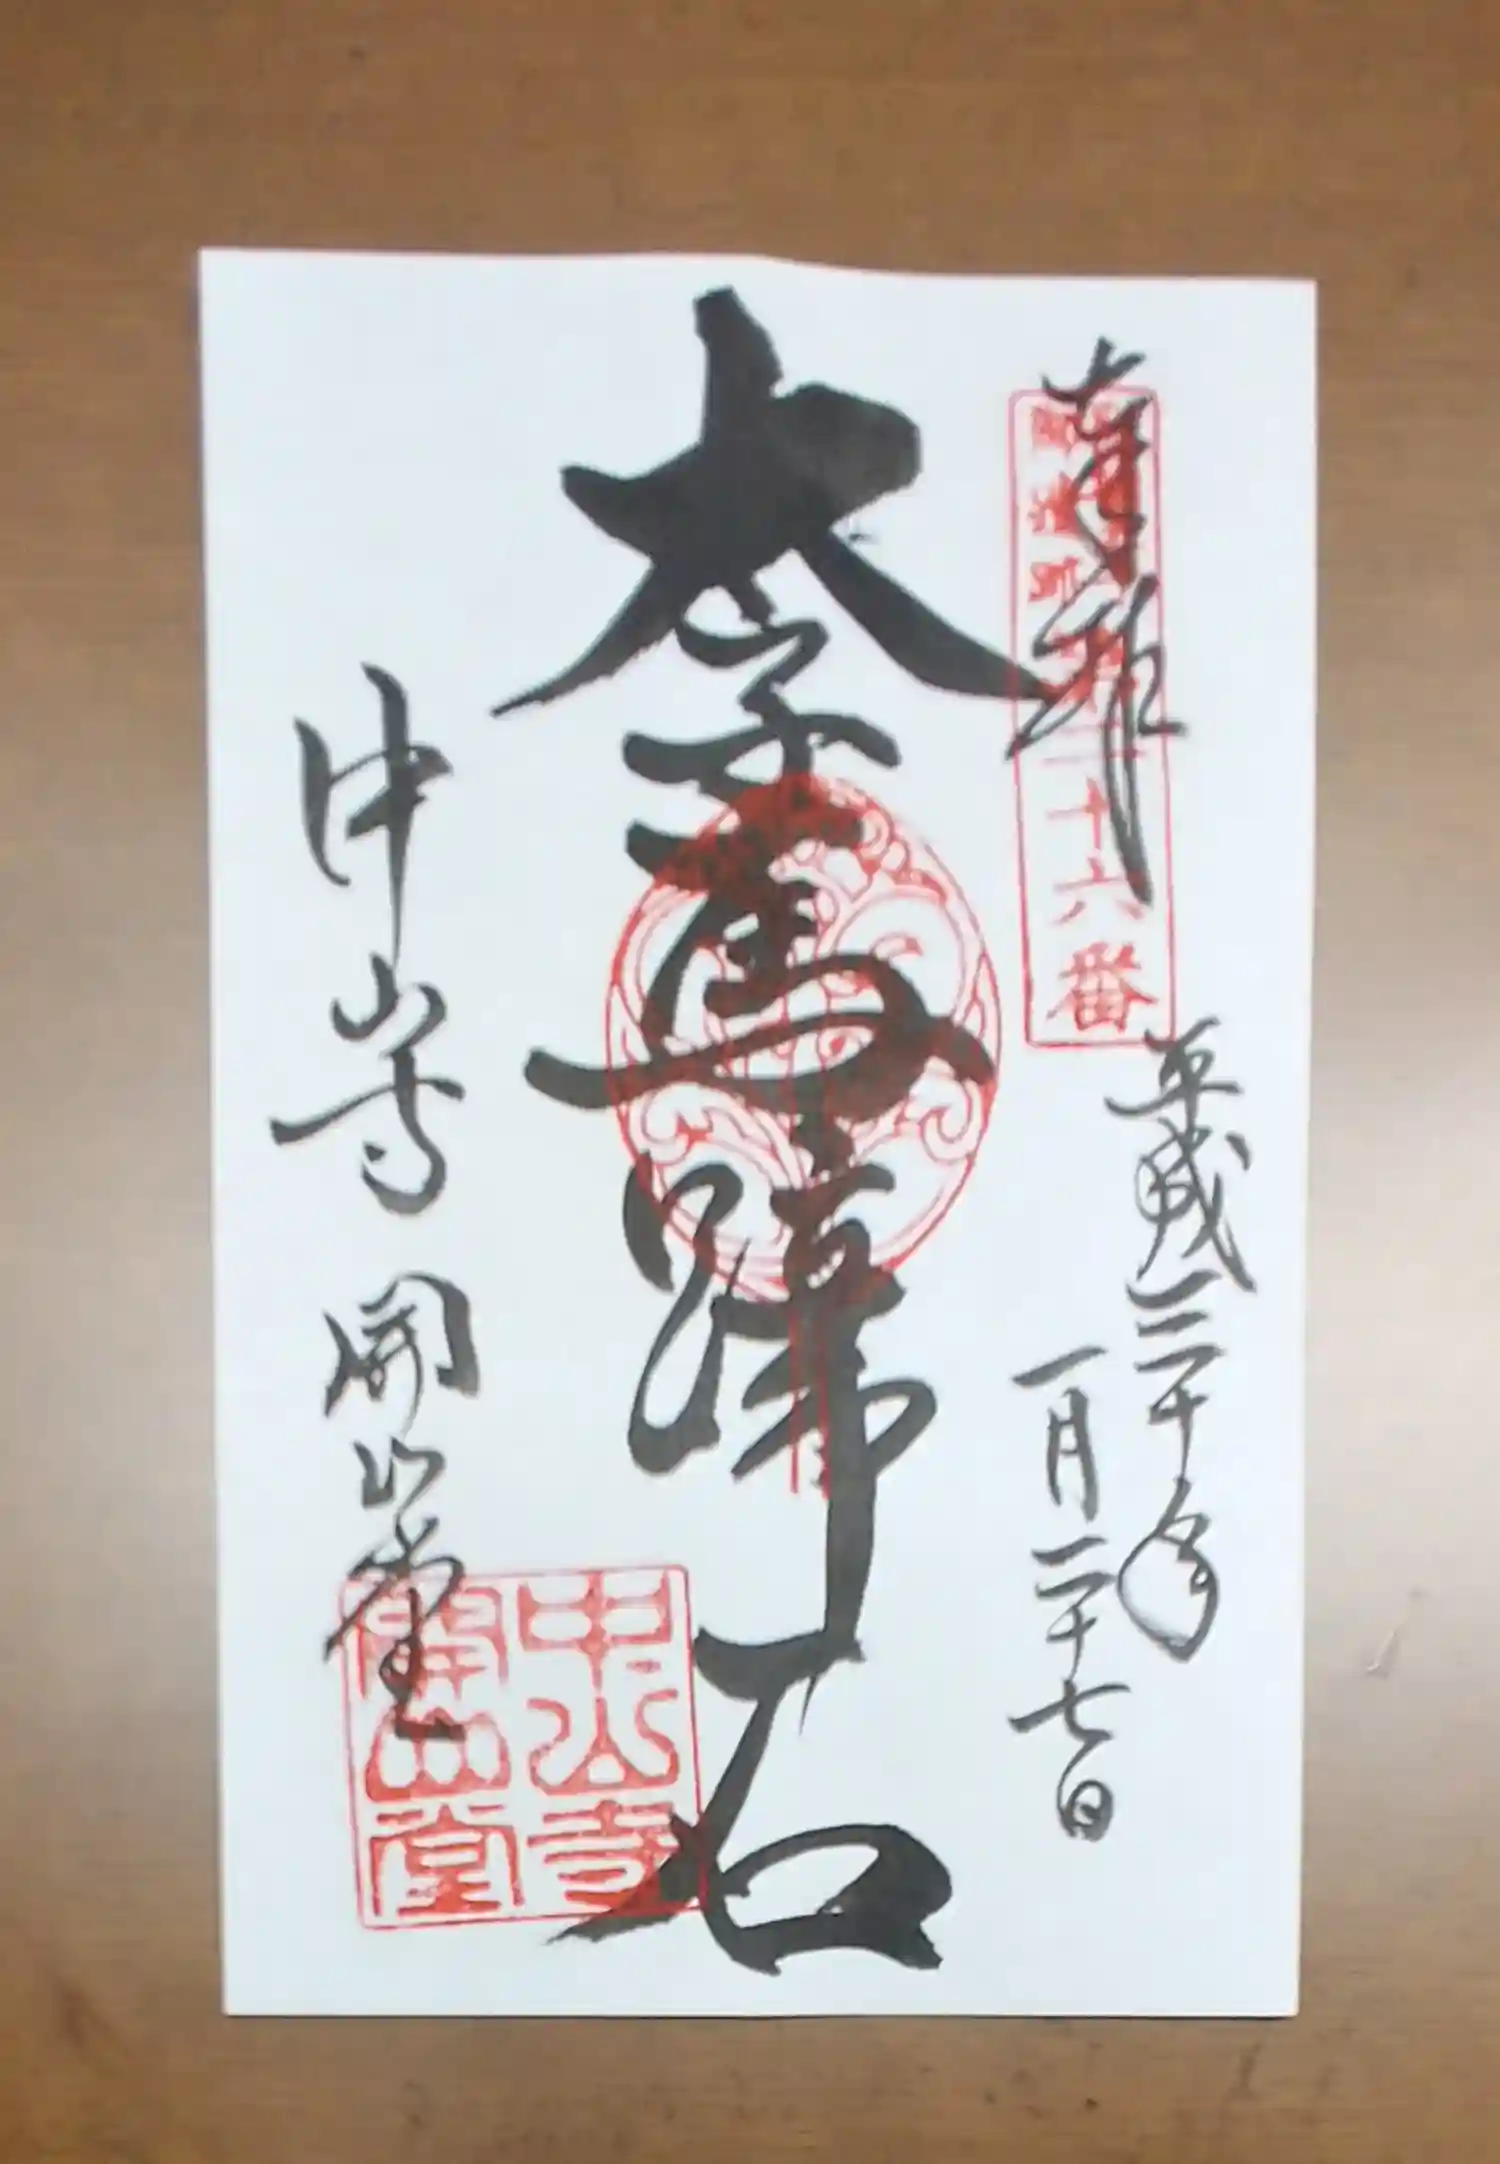 奉拝
十六番
平成三十年
一月二十七日
太子馬蹄石
中山寺 開山堂
中山寺
開山堂